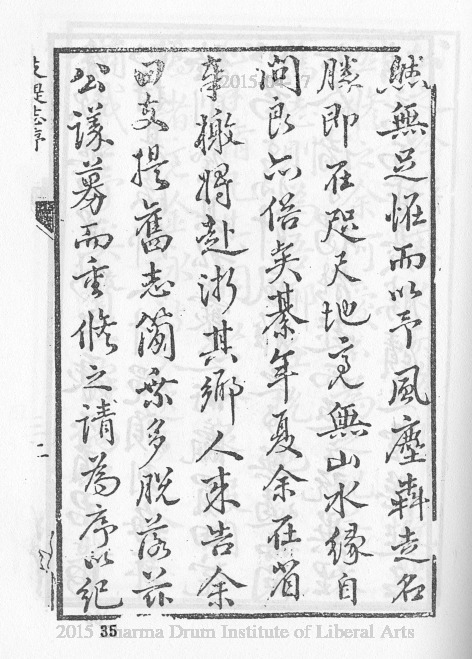 然無足怪而以予風塵犇走名
勝即在咫尺地竟無山水緣自
問良亦俗矣綦年夏余在省
奉檄將赴浙其鄉人來告余
曰支提舊志簡帙多脫落茲
公議募而重修之請為序以紀
支提志序
二
35
2015 Dharma Drum Institute of Liberal Arts